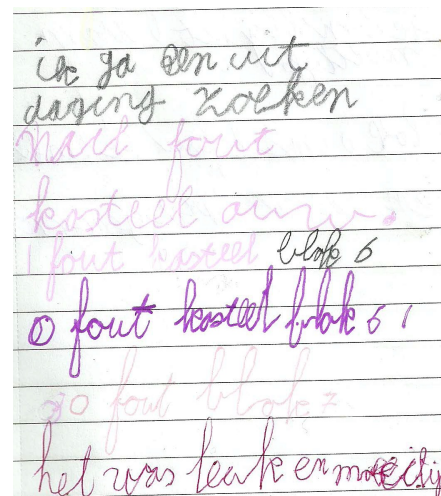 ik ga een uit
daging zoeken
fout
kasteel
1 fout kasteel blok 6
0 fout kasteel blok 6 1
0 fout blok 7
het was leuk en